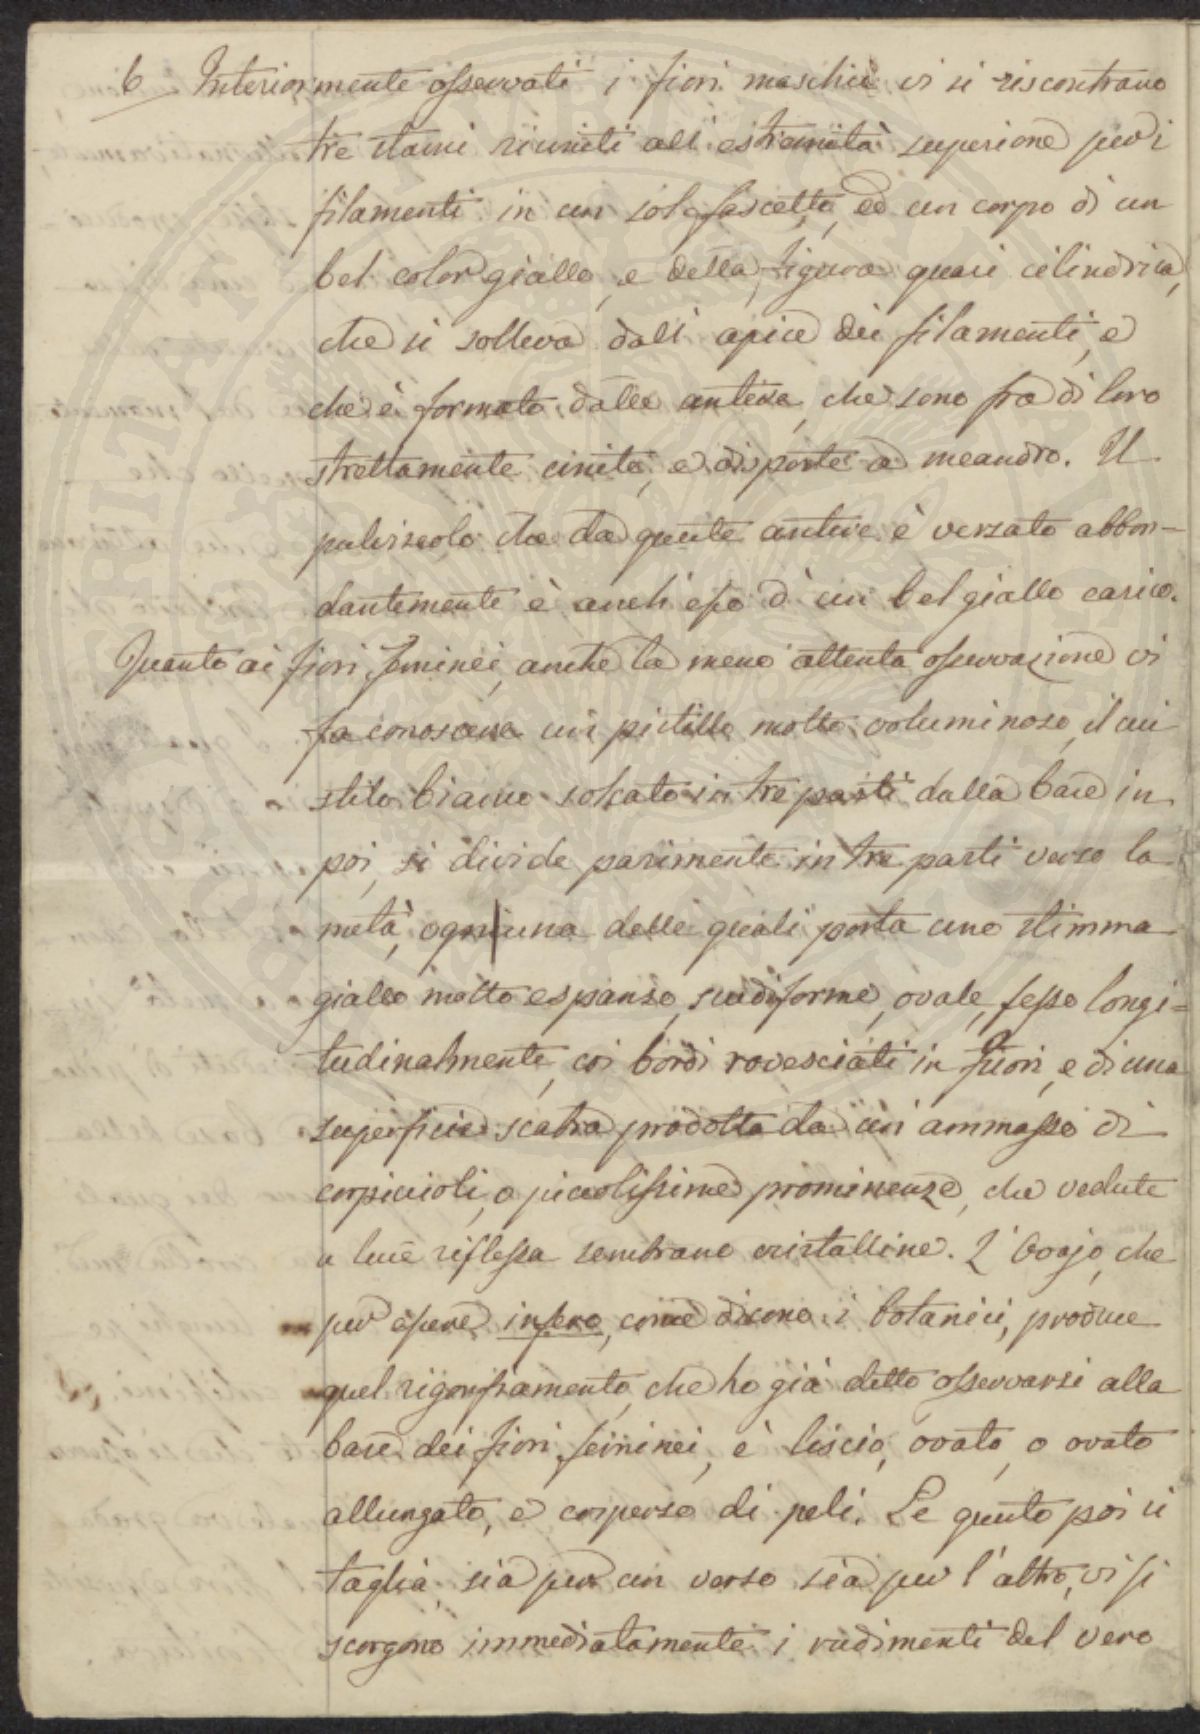 6 Interiormente osservati i fiori maschii vi si riscontrano
tre stami riuniti all'estremità superiore pei
filamenti in un sol fascetto, ed un corpo di un
bel color giallo, e della figura quasi cilindrica,
che si solleva dall'apice dei filamenti, e
che è formato dalle antere, che sono fra di loro
strettamente unite, e disposte a meandro. Il
pulviscolo che da queste antere è versato abbon=
dantemente è anch'esso d'un bel giallo carico.
Quanto ai fiori feminei, anche la meno attenta osservazione vi
fa conoscere un pistillo molto voluminoso, il cui
stilo bianco solcato in tre parti dalla base in
poi, si divide parimente in tre parti verso la
metà, ogni|una delle quali porta uno stimma
giallo molto espanso, scudiforme, ovale, fesso longi=
tudinalmente, coi bordi rovesciati in fuori, e di una
superficie scabra prodotta da un ammasso di
corpiccioli, o piccolissime prominenze, che vedute
a luce riflessa sembrano cristalline. L'ovajo, che
per essere infero, come dicono i botanici, produce
quel rigonfiamento, che ho già detto osservarsi alla
base dei fiori feminei, è liscio, ovato, o ovato
allungato, e cosperso di peli. Se questo poi si
taglia sia per un verso sia per l'altro, vi si
scorgono immediatamente i rudimenti del vero